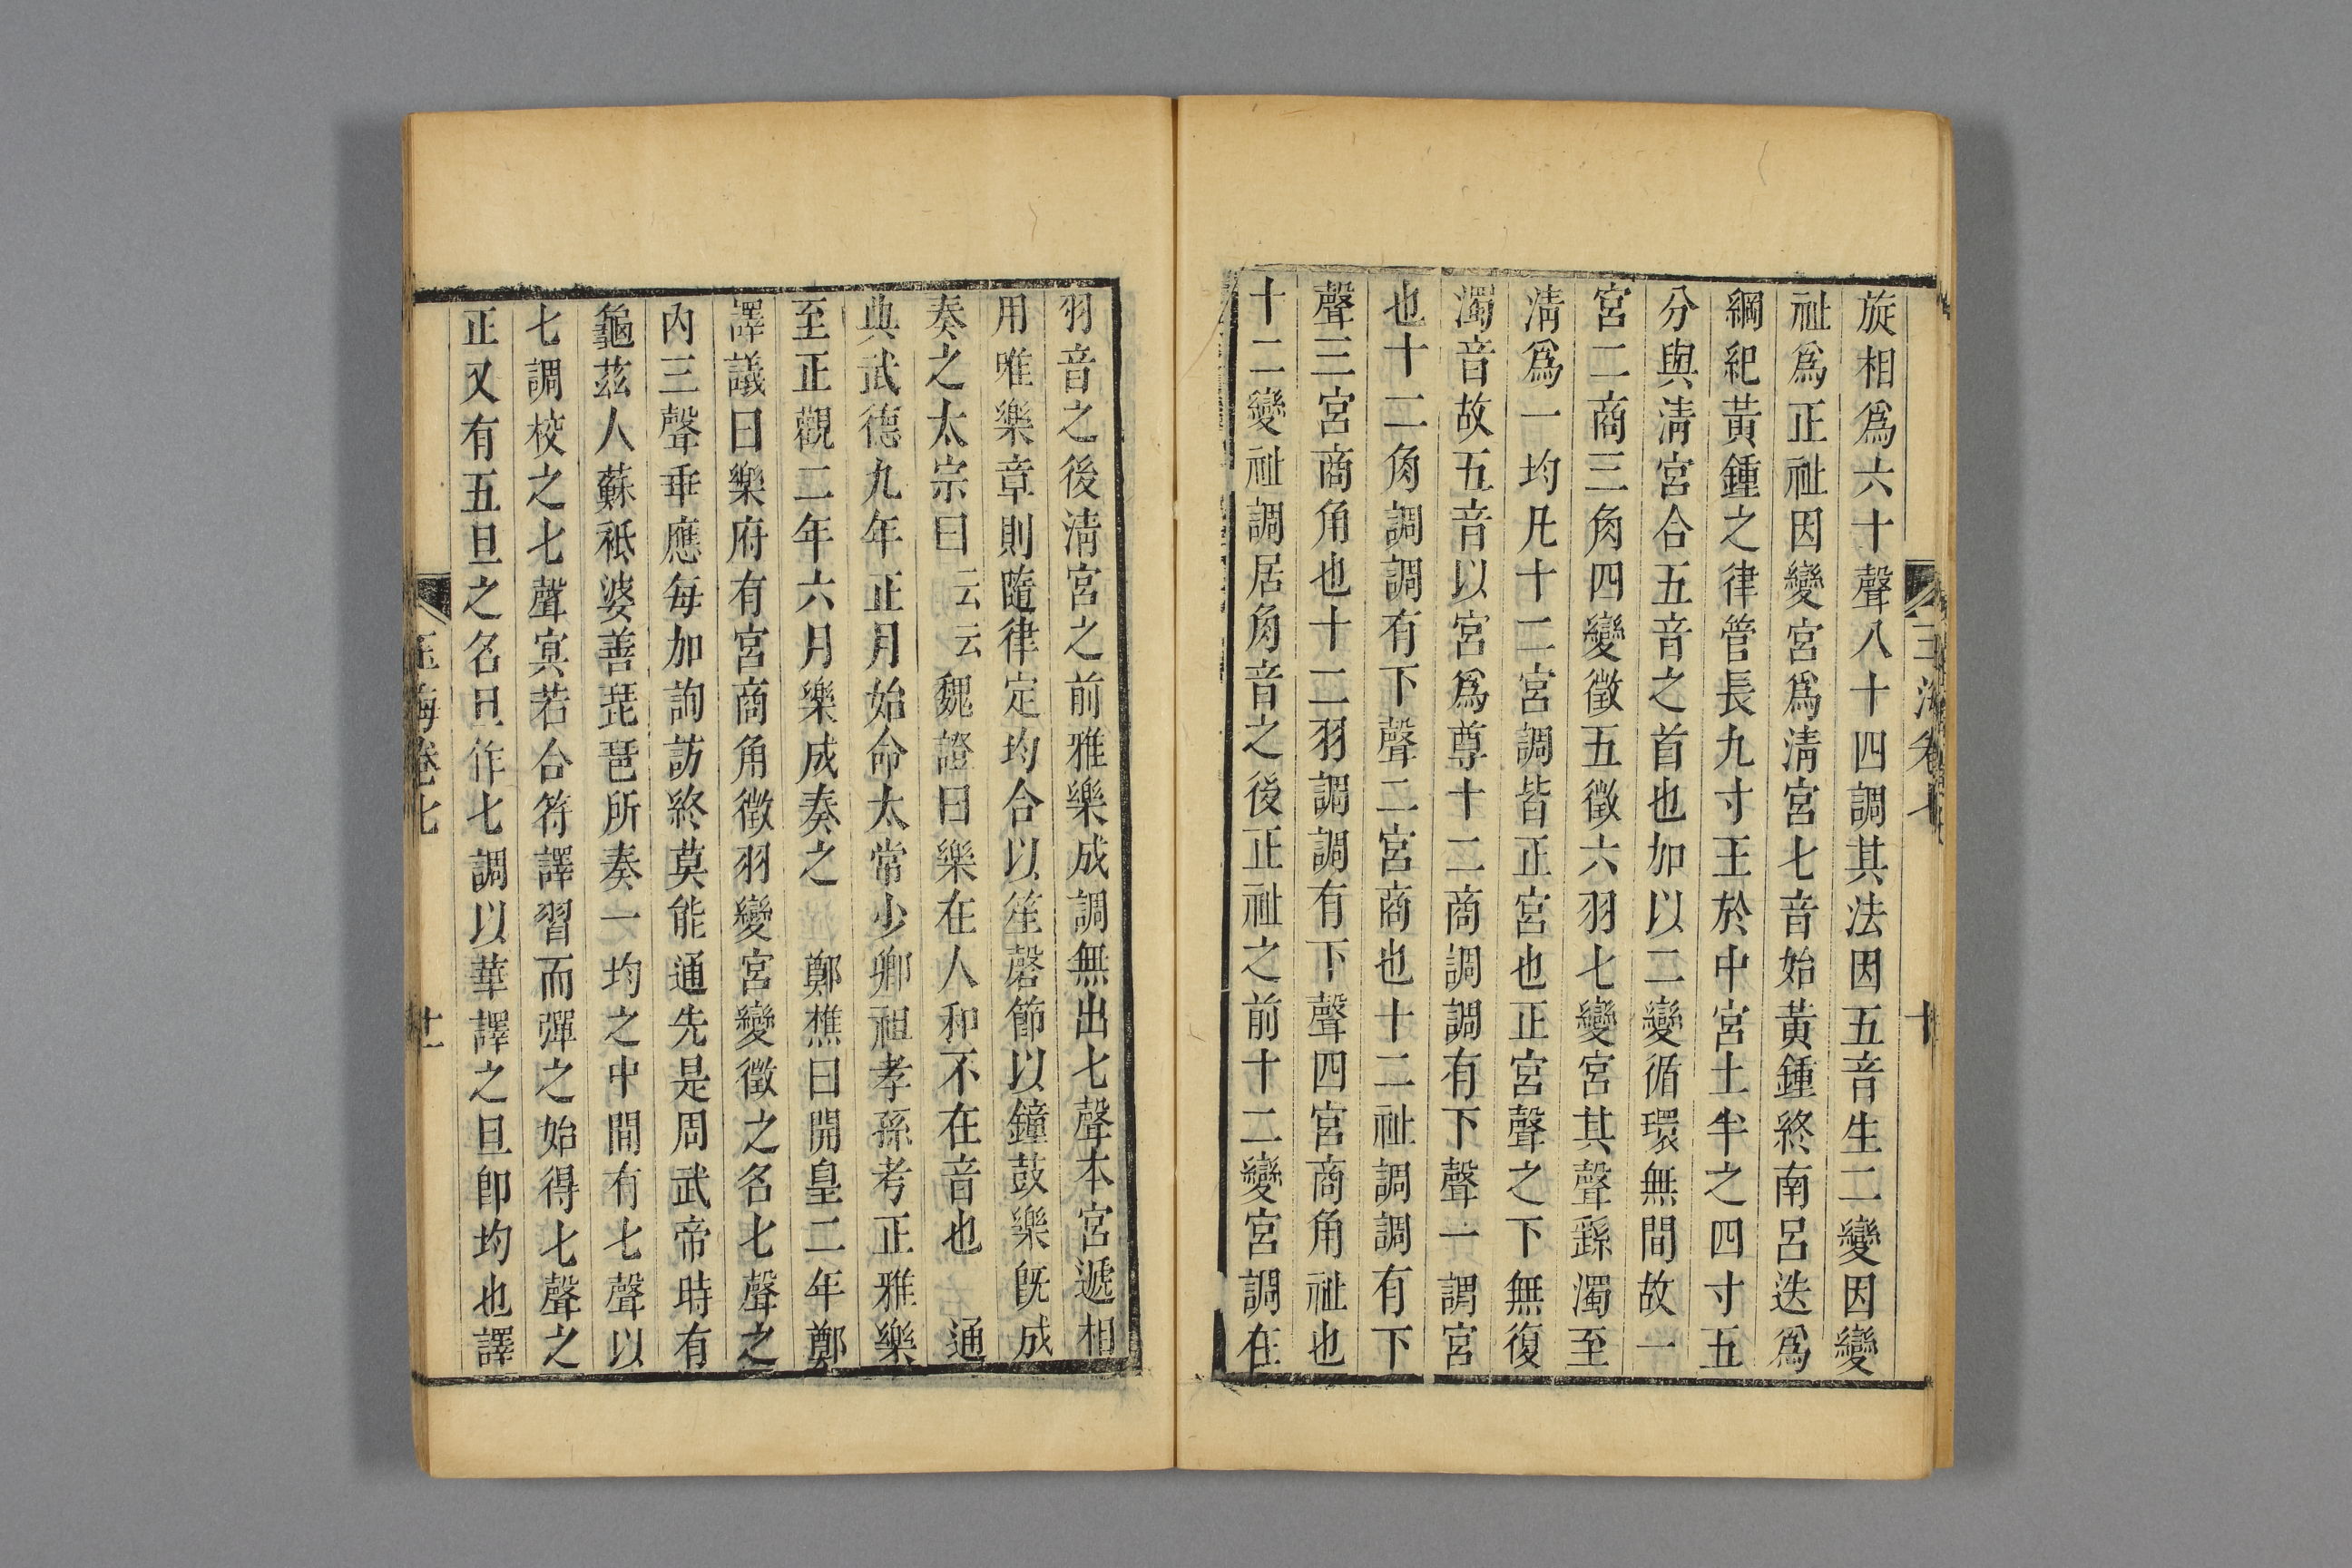 玉海卷七
旋相爲六十聲八十四調其法因五音生二變因變
祉爲正祉因變宮爲淸宮七音始黃鍾終南呂迭爲
綱紀黃鍾之律管長九寸王於中宮土半之四寸五
分與淸宮合五音之首也加以二變循環無間故一
宮二商三角四變徵五徵六羽七變宮其聲繇濁至
淸爲一均凡十二宮調皆正宮也正宮聲之下無復
濁音故五音以宮爲尊十二商調調有下聲一謂宮
也十二角調調有下聲二宮商也十二祉調調有下
聲三宮商角也十二羽調調有下聲四宮商角祉也
十二變祉調居角音之後正祉之前十二變宮調在
羽音之後淸宮之前雅樂成調無出七聲本宮遞相
用唯樂章則隨律定均合以笙磬節以鐘鼓樂旣成
奏之太宗曰云云魏證曰樂在人和不在音也 通
典武德九年正月始命太常少卿祖孝孫考正雅樂
至正觀二年六月樂成奏之 鄭樵曰開皇二年鄭
譯議曰樂府有宮商角徵羽變宮變徵之名七聲之
內三聲乖應每加詢訪終莫能通先是周武帝時有
龜茲人蘇祗婆善琵琶所奏一均之中間有七聲以
七調校之七聲冥若合符譯習而彈之始得七聲之
正又有五旦之名旦作七調以華譯之旦卽均也譯
玉海卷七
廿一